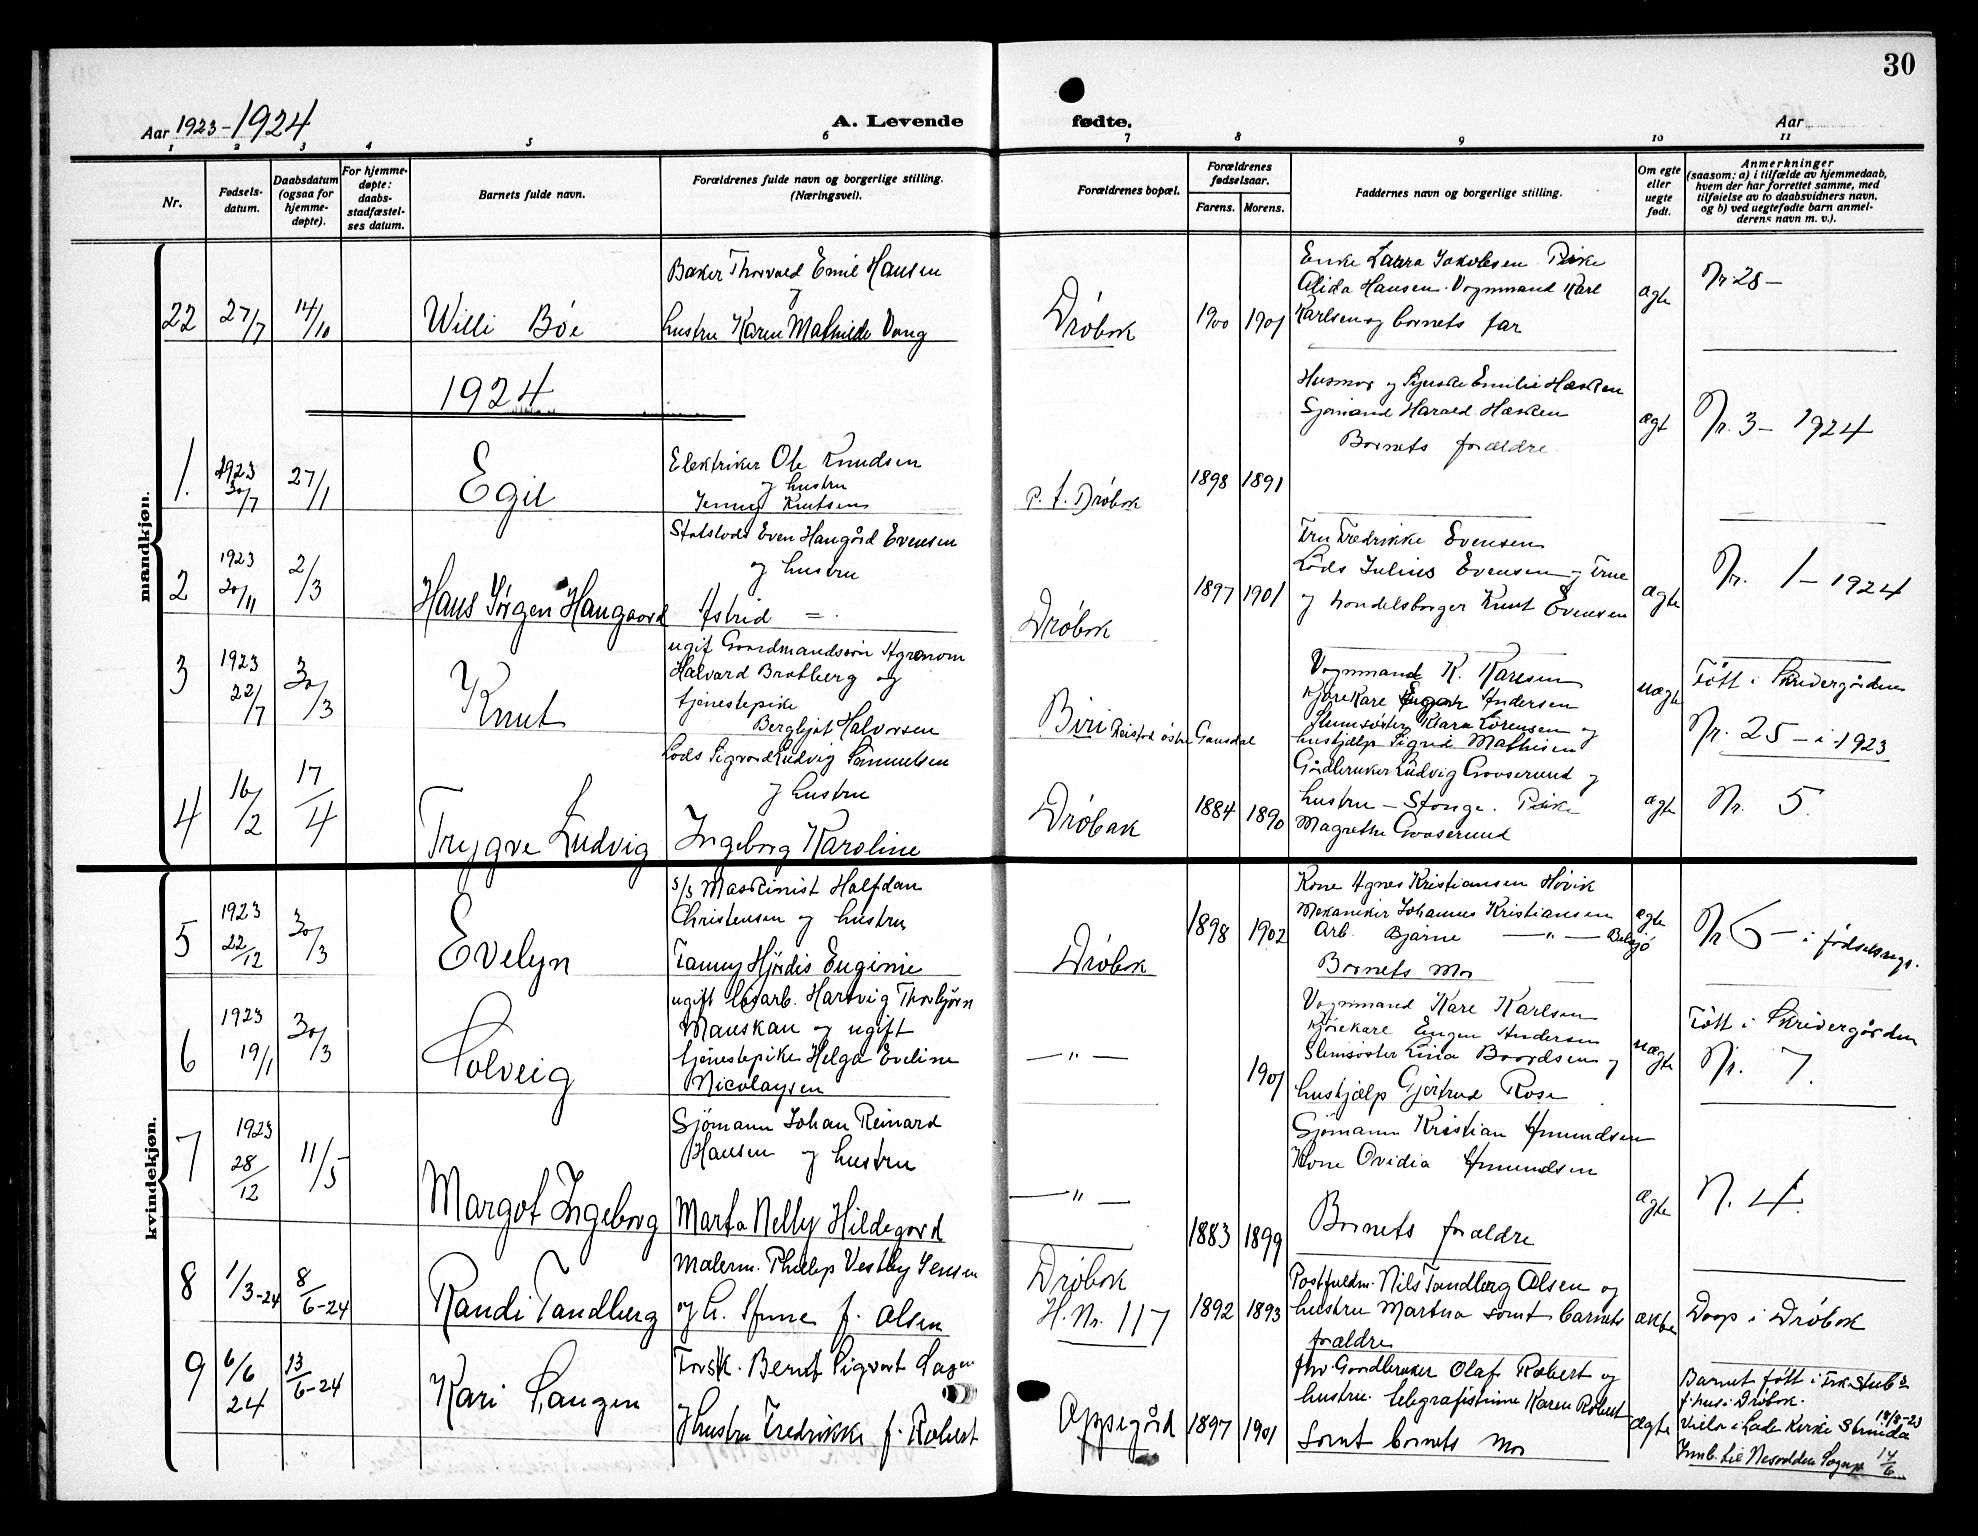 30
Aar 1923-1924
A. Levende fødte.
Aar
1 2 3 4 5 6 7 8 9 10 11
Nr.
Fødsels-
datum.
Daabsdatum
(ogsaa for
hjemme-
døpte).
For hjemme-
døpte:
daabs-
stadfæstel-
ses datum.
Barnets fulde navn.
Forældrenes fulde navn og borgerlige stilling.
(Næringsvei).
Forældrenes bopæl.
Forældrenes
fødselsaar.
Farens. Morens.
Faddernes navn og borgerlige stilling.
Om egte
eller
uegte
født.
Anmerkninger
(saasom: a) i tilfælde av hjemmedaab,
hvem der har forrettet samme, med
tilføielse av to daabsvidners navn,
og b) ved uegtefødte barn anmel-
derens navn m. v.).
mandkjøn.
22 27/7 14/10
Willi Böe
Baker Thorvald Emil Hansen
og
hustru Karen Mathilde Vang
Dröbak
1900 1901
Enke Laura Jakobsen. Pike
Alida Hansen. Vognmand Karl
Karlsen og barnets far
ægte
Nr. 28 –
1924
1. 1923 30/7 27/1
Egil
Elektriker Ole Knudsen
og hustru
Jenny Knutsen
p. t. Dröbak
1898 1891
Husmor og Emilie Hæsken
Sjömand Harald Hæsken
Barnets forældre
ægt
Nr. 3 – 1924
2 1923 30/11 2/3
Hans Jörgen Haugaard
Statslods Even Haugård Evensen
og hustru
Astrid =
Dröbak
1897 1901
Fru Fredrikke Evensen
Lods Julius Evensen og Frue
og handelsborger Knut Evensen
ægte
Nr. 1 – 1924
3 1923 22/7 30/3
Knut
ugift Gaardmandssön Agronom
Halvard Bratberg og
tjenestepike
Bergljot Halvorsen
Biri östre Gausdal
Vognmand K. Karlsen
Kjörekare Eugen Andersen
Slumsöster Klara Lorensen og
hushjælp Sigrid Mathisen
uægte
Född i Skrivergården
Nr. 25 – i 1923
4 16/2 17/4
Trygve Ludvig
Lods Sigvard Ludvig Samuelsen
og hustru
Ingeborg Karoline
Dröbak
1884 1890
Gårdbruker Ludvig Gaaserund og
hustru – Stange. Pike
Magrethe Gaaserund
ægte
Nr. 5.
kvindekjøn.
5 1923 22/12 30/3
Evelyn
s/s Maskinist Halfdan
Christensen og hustru
Fanny Hjördis Euginie
Dröbak
1898 1902
Kone Agnes Kristiansen Hövik
Mekaniker Johannes Kristiansen
Arb. Bjarne — " —
Barnets Mor
ægte
Nr 6 – i födselsregs.
6 1923 19/1 30/3
Solveig
ugift lösarb. Hartvig Thorbjörn
Manskau og ugift
tjenestepike Helga Eveline
Nicolaysen
— " —
1901
Vognmand Kare Karlsen
Kjörekare Eugen Andersen
Slumsöster Lina Baardsen og
hushjælp Gjertrud Rose
uægte
Född i Skrivergården
Nr. 7.
7 1923 28/12 11/5
Margot Ingeborg
Sjömann Johan Reinard
Hansen og hustru
Marta Nelly Hildegard
— " —
1883 1899
Sjömann Kristian Amundsen
Kone Ovidia Amundsen
Barnets forældre
ægte
N. 4.
8 1/3-24 8/6-24
Randi Tandberg
Malerm. Philip Vestby Jensen
og h. Anne f. Olsen
Dröbak
H. Nr. 117
1892 1893
Postfuldm. Nils Tandberg Olsen og
hustru Martna samt barnets
forældre
ækte
Daap i Dröbak
9 6/6 24 13/6-24
Kari Saugen
Forsk. Bernt Sigvart Saugen
og hustru Fredrikke f. Robert
Oppegård
1897 1901
fhv. Gaardbruker Olaf Robert og
hustru. telegrafistinne Karen Robert
samt barnets Mor
ægte
Barnet född i Frk. Stubs
f. hus i Dröbak.
Viela i Lade Kirke Strinda 18/8-23
Innb. til Nesodden Sogn 14/6